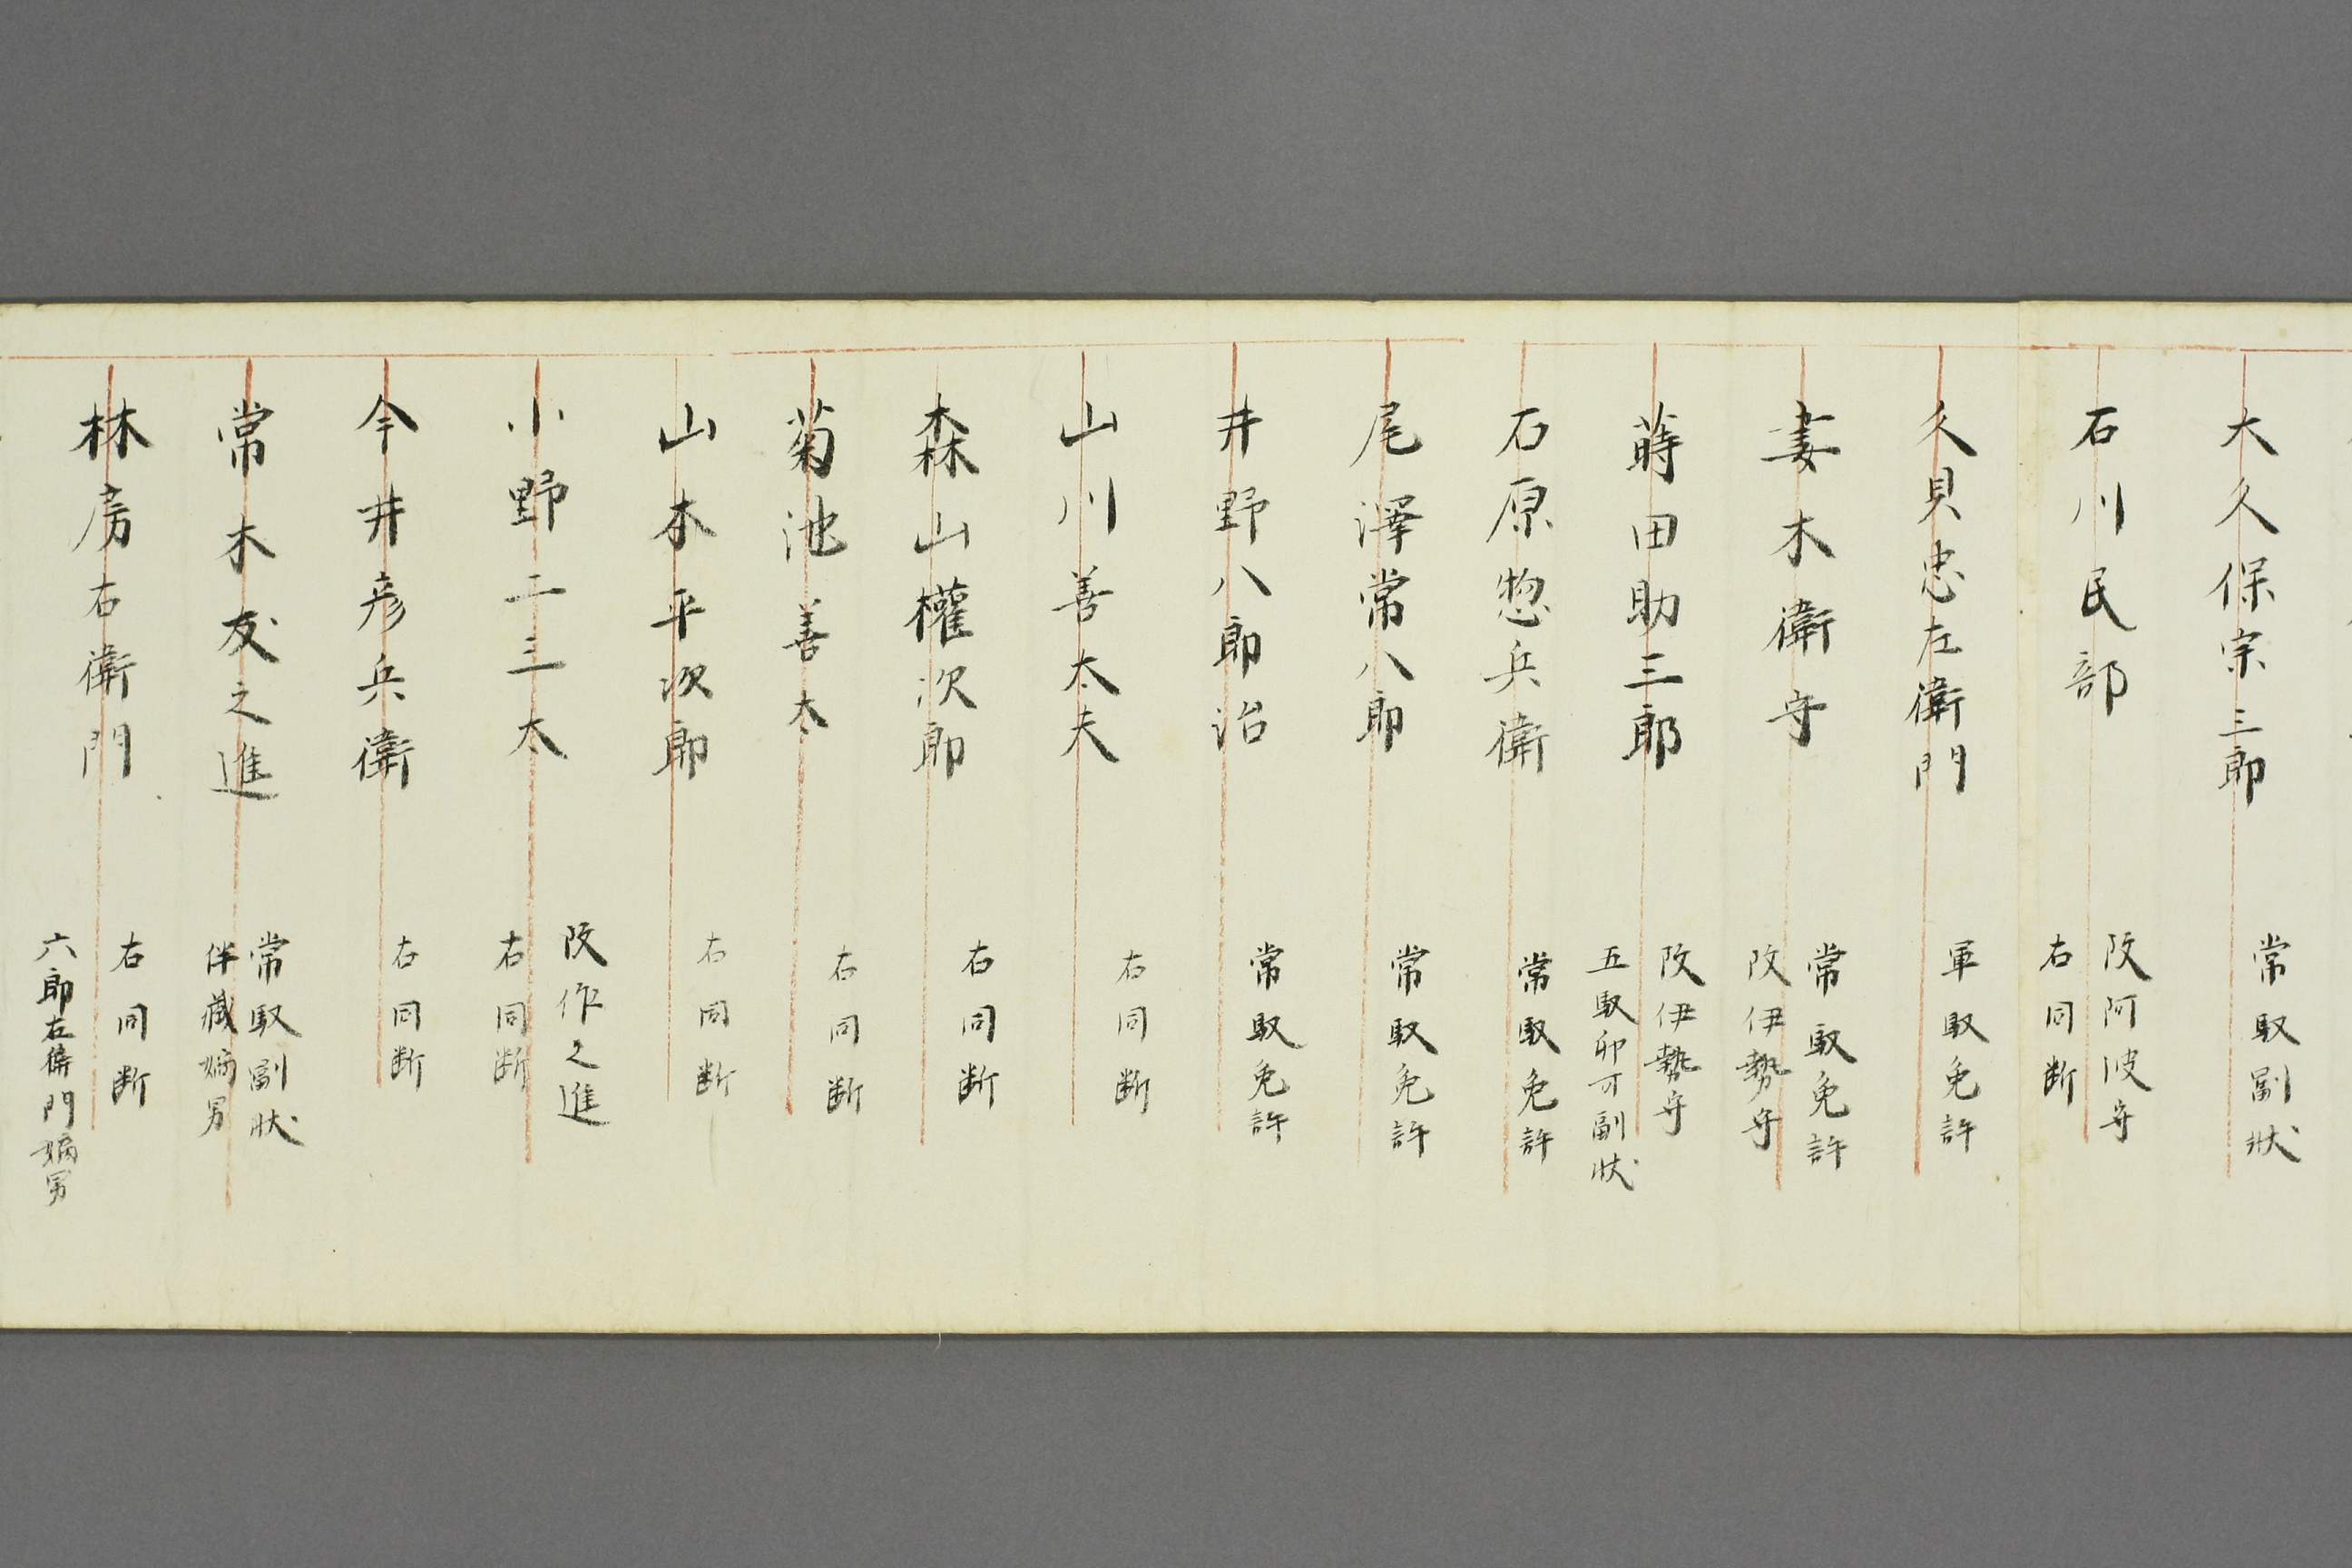 大久保宗三郎
常馭副狀
石川民部
改阿波守
右同断
久貝忠左衛門
軍馭免許
妻木衛守
常馭免許
改伊勢守
蒔田助三郎
改伊勢守
五馭卯可副狀
石原惣兵衛
常馭免許
尾澤常八郎
常馭免許
井野八郎治
常馭免許
山川善太夫
右同断
森山權次郎
右同断
菊池善太
右同断
山本平次郎
右同断
小野二三太
改作之進
右同断
今井彦兵衛
右同断
常木友之進
常馭副狀
伴藏嫡男
林房右衛門
右同断
六郎左衛門嫡男